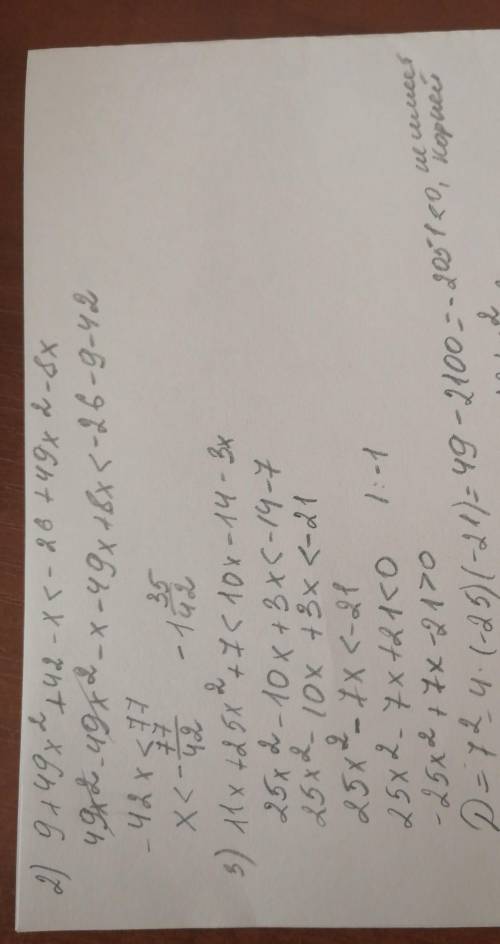 2) 9+49x²+42-x<-26+49x²-8x
49x²-49x²-x-49x+8x<-26-9-42
-42x<77
x<-77/42 -1 35/42
3) 11x+25x²+7<10x-14-3x
25x²-10x+3x<-14-7
25x²-10x+3x<-21
25x²-7x<-21
25x²-7x+21<0 |:-1
-25x²+7x-21>0
D=7²-4·(-25)(-21)=49-2100=-2051<0, не имеет
корней